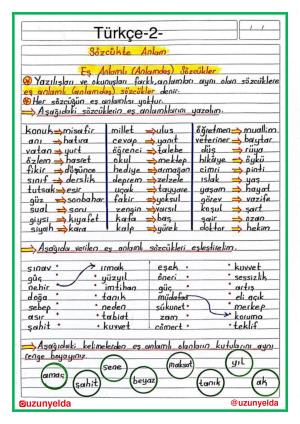 Türkçe-2-
Sözcükte Anlam
Eş Anlamlı (Anlamdaş) Sözcükler
Yazılışları ve okunuşları farklı, anlamları aynı olan sözcüklere
eş anlamlı (anlamdaş) sözcükler denir.
Her sözcüğün eş anlamlısı yoktur.
Aşağıdaki sözcüklerin eş anlamlılarını yazalım.
konuk → misafir millet → ulus öğretmen → muallim
anı → hatıra cevap → yanıt veteriner → baytar
vatan → yurt öğrenci → talebe düş → rüya
özlem → hasret okul → mektep hikâye → öykü
fikir → düşünce hediye → armağan cimri → pinti
sınıf → derslik deprem → zelzele ıslak → yaş
tutsak → esir uçak → tayyare yaşam → hayat
güz → sonbahar fakir → yoksul görev → vazife
sual → soru zengin → varsıl koşul → şart
giysi → kıyafet kalp şair → ozan
siyah → kara kalp → yürek doktor → hekim
Aşağıda verilen eş anlamlı sözcükleri eşleştirelim.
sınav ırmak eşek kuvvet
güç yüzyıl öneri sessizlik
nehir imtihan güç artış
doğa tanık müdafaa eli açık
sebep neden sükunet merkep
asır tabiat zam koruma
şahit kuvvet cömert teklif
Aşağıdaki kelimelerden eş anlamlı olanların kutularını aynı
renge boyayınız.
amaç şahit sene beyaz maksat tanık yıl ak
@uzunyelda @uzunyelda